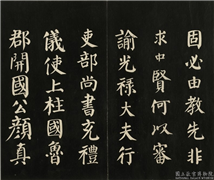 固必由教先非
求中賢何以審
諭光祿大夫行
吏部尚書充禮
儀使上柱國魯
郡開國公顏真